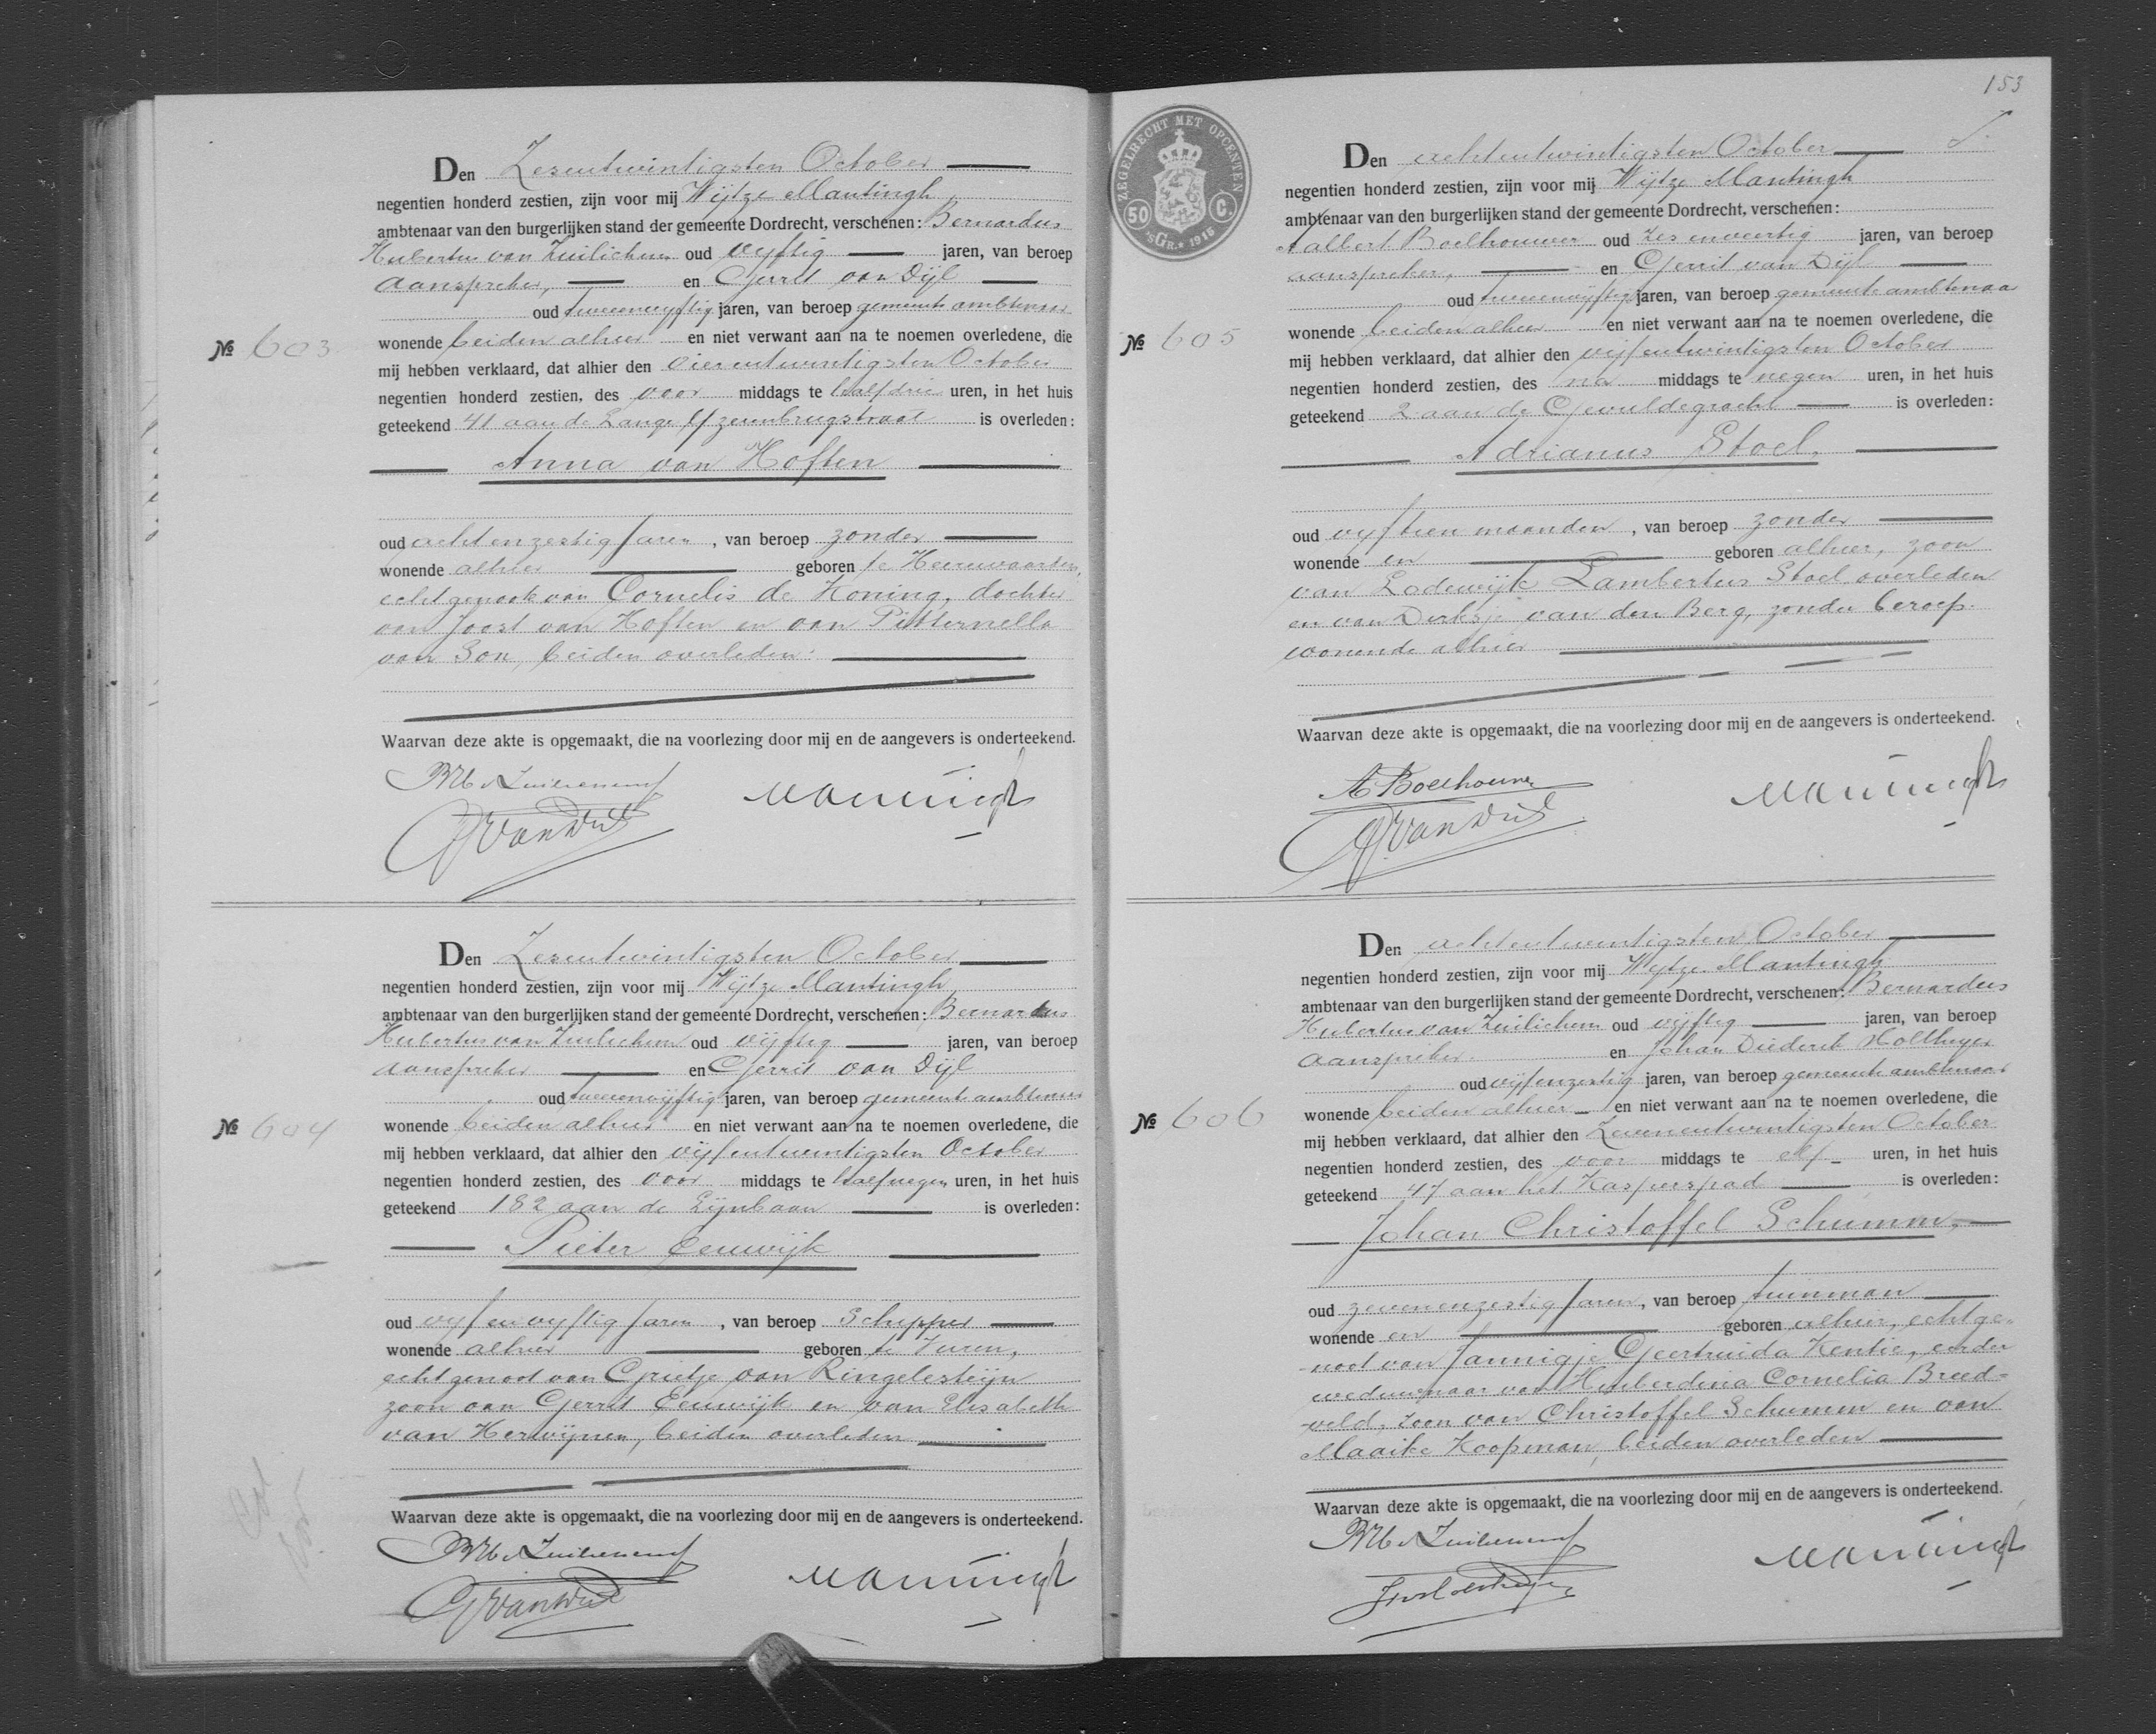 Den Zesentwintigsten October
negentien honderd zestien, zijn voor mij Wijtze Mantingh
ambtenaar van den burgerlijken stand der gemeente Dordrecht, verschenen: Bernardus
Hubertus van Zuilichem oud vijftig jaren, van beroep
aanspreker, en Gerrit van Dijl
oud tweeenvijftig jaren, van beroep gemeente ambtenaar
wonende beiden alhier en niet verwant aan na te noemen overledene, die
№ 603
mij hebben verklaard, dat alhier den vierentwintigsten October
negentien honderd zestien, des voor middags te half drie uren, in het huis
geteekend 41 aan de Lange IJzerenbrugstraat is overleden:
Anna van Hoften
oud achtenzestig jaren, van beroep zonder
wonende alhier geboren te Heerewaarden,
echtgenoote van Cornelis de Koning, dochter
van Joost van Hoften en van Pitternella
van Son, beiden overleden.
Waarvan deze akte is opgemaakt, die na voorlezing door mij en de aangevers is onderteekend.
BHvZuilichem
Mantingh
GvanDijl
Den Zesentwintigsten October
negentien honderd zestien, zijn voor mij Wijtze Mantingh
ambtenaar van den burgerlijken stand der gemeente Dordrecht, verschenen: Bernardus
Hubertus van Zuilichem oud vijftig jaren, van beroep
aanspreker en Gerrit van Dijl
oud tweeenvijftig jaren, van beroep gemeente ambtenaar
wonende beiden alhier en niet verwant aan na te noemen overledene, die
№ 604
mij hebben verklaard, dat alhier den vijfentwintigsten October
negentien honderd zestien, des voor middags te half negen uren, in het huis
geteekend 182 aan de Lijnbaan is overleden:
Pieter Eeuwijk
oud vijfenvijftig jaren, van beroep Schipper
wonende alhier geboren te Vuren,
echtgenoot van Grietje van Ringelesteijn
zoon van Gerrit Eeuwijk en van Elisabeth
van Herwijnen, beiden overleden
Waarvan deze akte is opgemaakt, die na voorlezing door mij en de aangevers is onderteekend.
BHvZuilichem
Mantingh
GvanDijl
153
ZEGELRECHT MET OPCENTEN
50 C.
'sGR. 1915
Den achtentwintigsten October
negentien honderd zestien, zijn voor mij Wijtze Mantingh
ambtenaar van den burgerlijken stand der gemeente Dordrecht, verschenen:
Aalbert Boelhouwer oud zesenveertig jaren, van beroep
aanspreker, en Gerrit van Dijl
oud tweeenvijftig jaren, van beroep gemeente ambtenaa
wonende beiden alhier en niet verwant aan na te noemen overledene, die
№ 605
mij hebben verklaard, dat alhier den vijfentwintigsten October
negentien honderd zestien, des na middags te negen uren, in het huis
geteekend 2 aan de Gevuldegracht is overleden:
Adrianus Stoel,
oud vijftien maanden, van beroep zonder
wonende en geboren alhier, zoon
van Lodewijk Lambertus Stoel overleden
en van Dirksje van den Berg, zonder beroep.
wonende alhier
Waarvan deze akte is opgemaakt, die na voorlezing door mij en de aangevers is onderteekend.
A Boelhouwer
Mantingh
GvanDijl
Den achtentwintigsten October
negentien honderd zestien, zijn voor mij Wijtze Mantingh
ambtenaar van den burgerlijken stand der gemeente Dordrecht, verschenen: Bernardus
Hubertus van Zuilichem oud vijftig jaren, van beroep
aanspreker. en Johan Diederik Holtheyer
oud vijfenzestig jaren, van beroep gemeente ambtenaar
wonende beiden alhier en niet verwant aan na te noemen overledene, die
№ 606
mij hebben verklaard, dat alhier den Zevenentwintigsten October
negentien honderd zestien, des voor middags te elf uren, in het huis
geteekend 47 aan het Kasperspad is overleden:
Johan Christoffel Schumm,
oud zevenenzestig jaren, van beroep tuinman
wonende en geboren alhier, echtge-
noot van Jannigje Geertruida Kentie, eerder
weduwnaar van Huiberdina Cornelia Breed-
veld, zoon van Christoffel Schumm en van
Maaike Koopman, beiden overleden
Waarvan deze akte is opgemaakt, die na voorlezing door mij en de aangevers is onderteekend.
BHvZuilichem
Mantingh